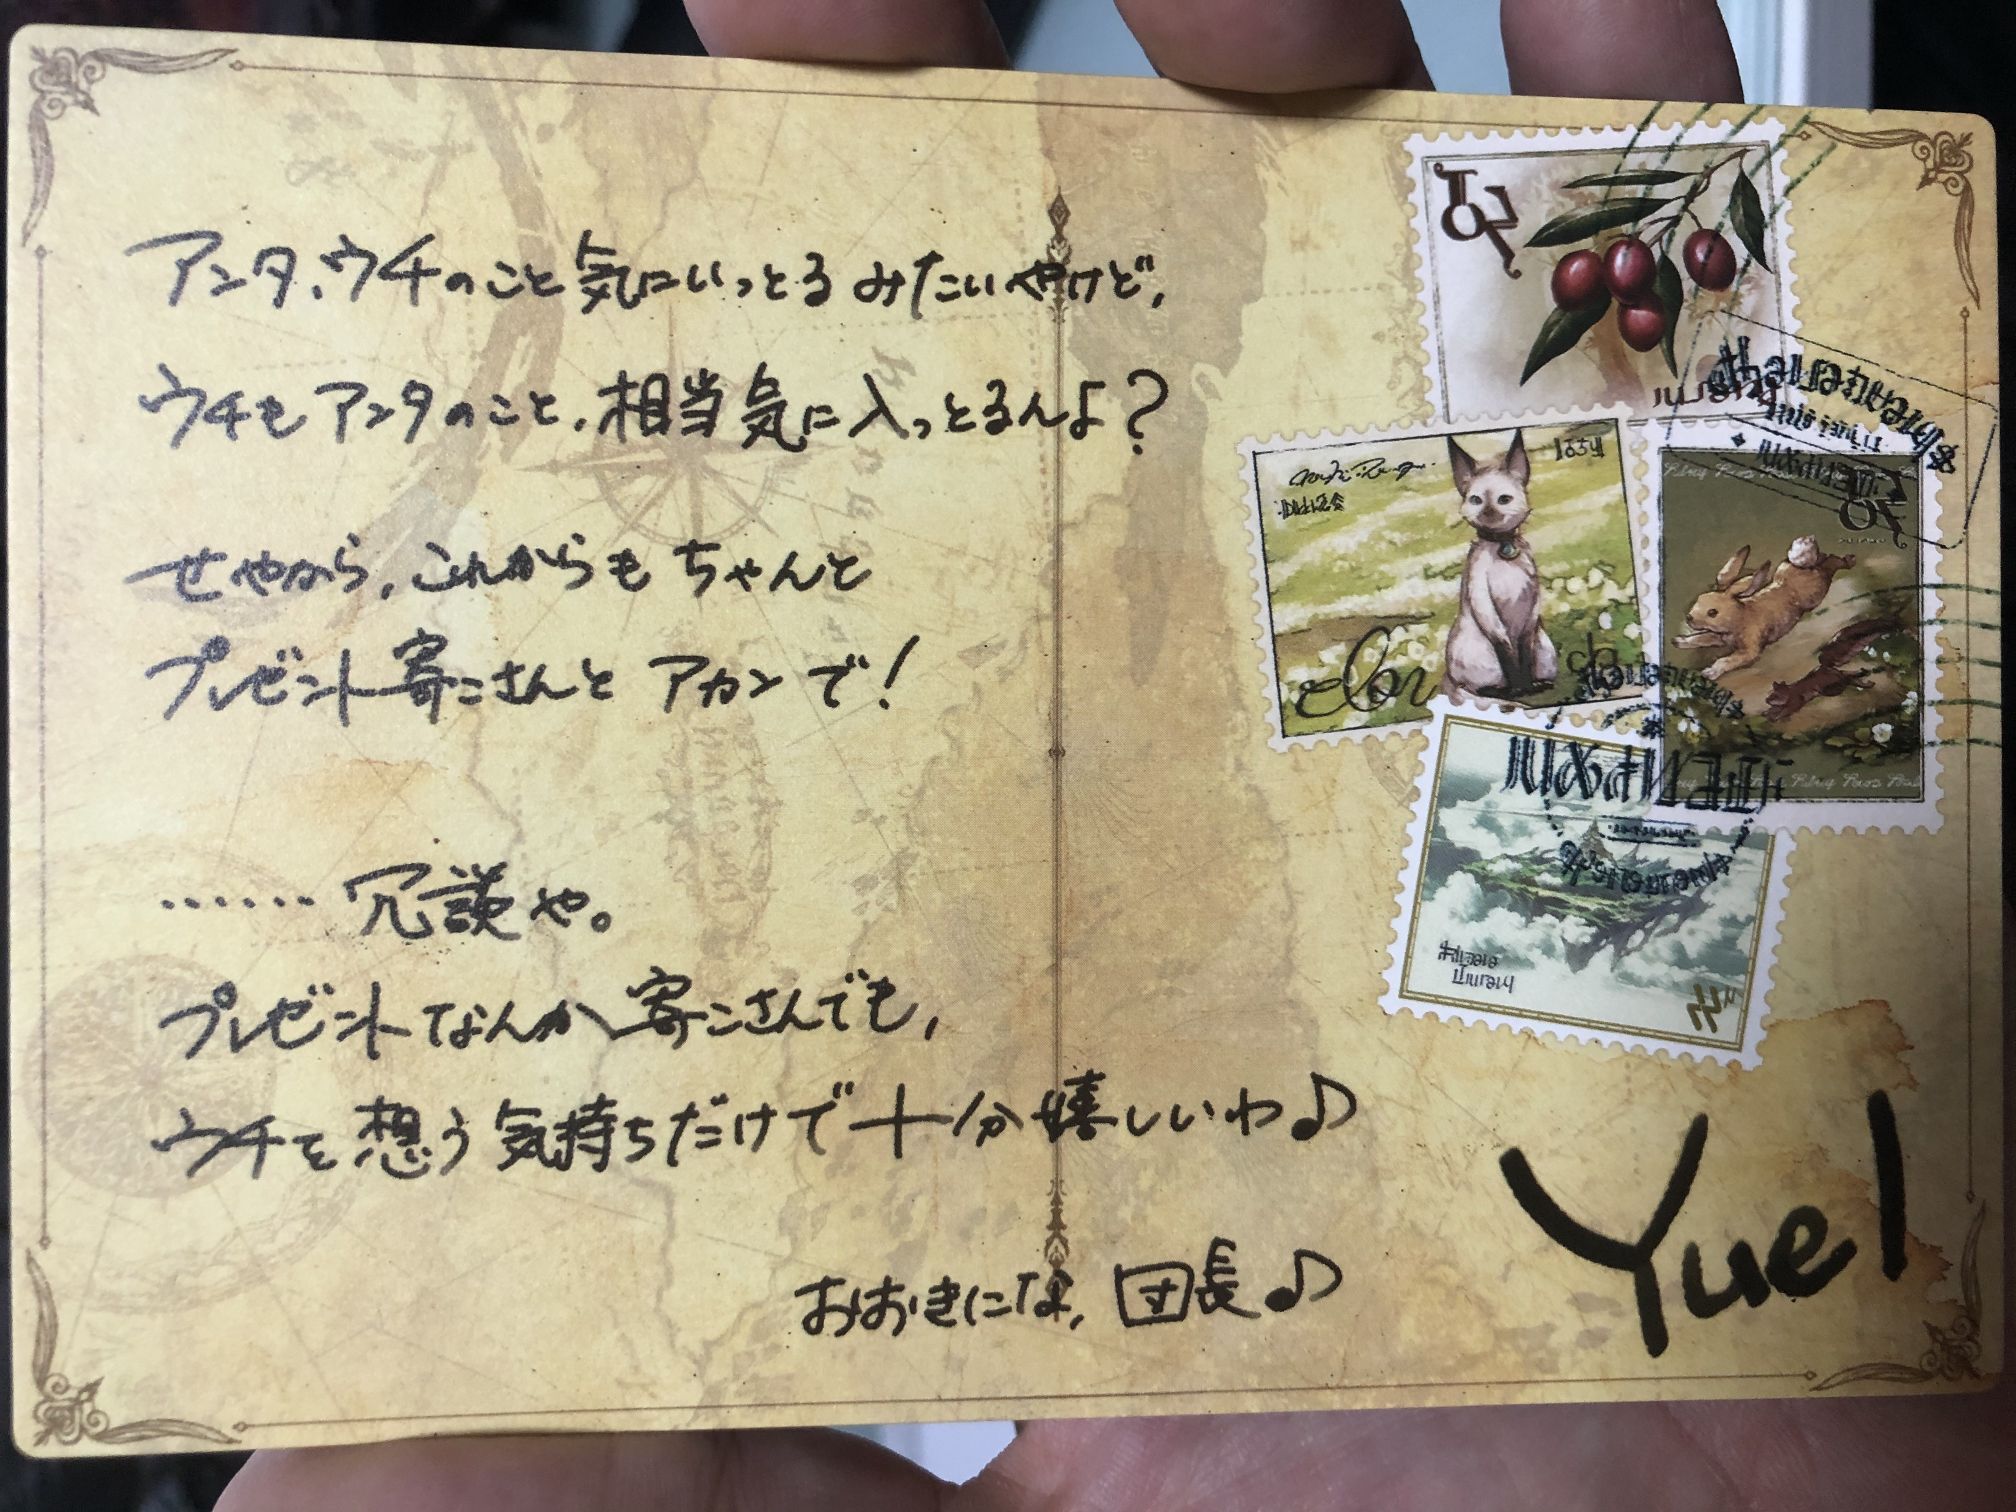 アンタ、ウチのこと気にいっとるみたいやけど、
ウチもアンタのこと、相当気に入っとるんよ？
せやから、これからもちゃんと
プレゼント寄こさんとアカンで！
……冗談や。
プレゼントなんか寄こさんでも、
ウチを想う気持ちだけで十分嬉しいわ♪
おおきにな、団長♪
Yuel